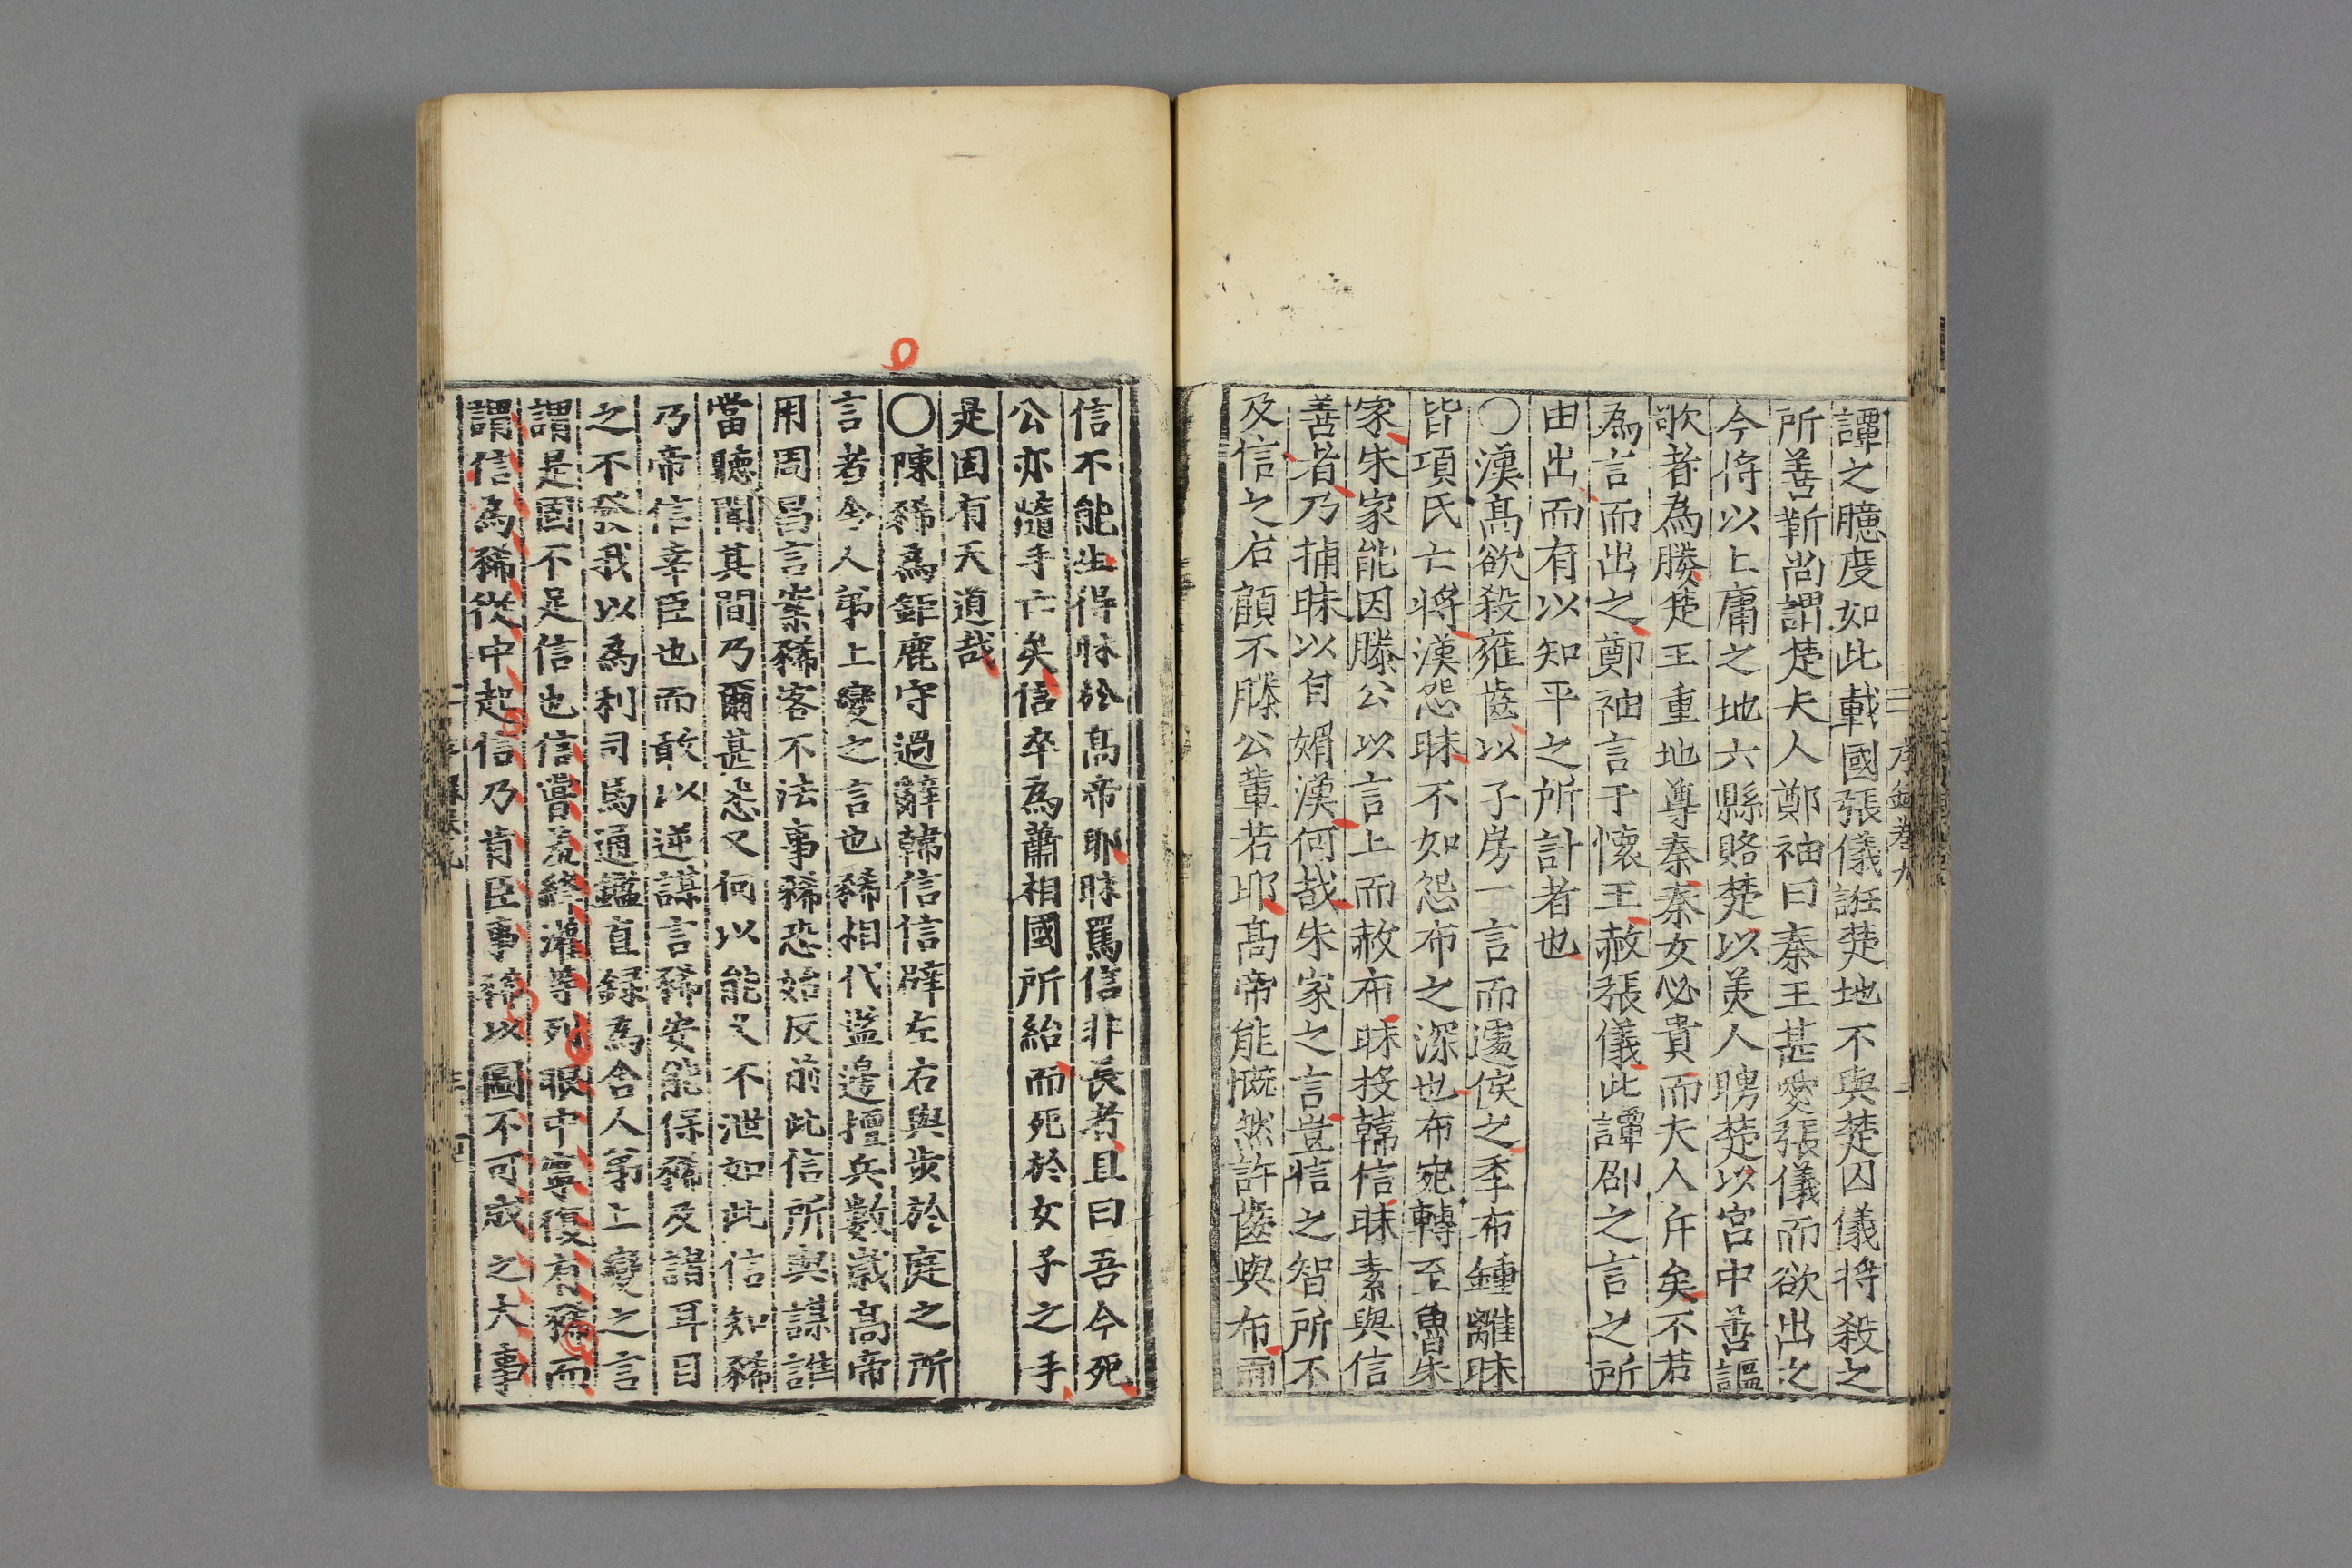 譚之臆度如此載國張儀誑楚地不與楚囚儀將殺之
所善靳尚謂楚夫人鄭袖曰秦王甚愛張儀而欲出之
今將以上庸之地六縣賂楚以美人聘楚以宮中善謳
歌者為勝楚王重地尊秦秦女必貴而夫人斥矣不若
為言而出之鄭袖言于懷王赦張儀此譚邵之言之所
由出而有以知平之所計者也
〇漢高欲殺雍齒以子房一言而遽侯之季布鍾離昧
皆項氏亡將漢怨昧不如怨布之深也布宛轉至魯朱
家朱家能因滕公以言上而赦布昧投韓信昧素與信
善者乃捕昧以自媚漢何哉朱家之言豈信之智所不
及信之右顧不滕公輩若耶高帝能慨然許齒與布而
信不能生得昧於高帝耶昧罵信非長者且曰吾今死
公亦隨手亡矣信卒為蕭相國所紿而死於女子之手
是固有天道哉
〇陳豨為鉅鹿守過辭韓信信辟左右與步於庭之所
言者舍人弟上變之言也豨相代監邊擅兵數歲高帝
用周昌言案豨客不法事豨恐始反前此信所與謀誰
當聽聞其間乃爾甚悉又何以能久不泄如此信知豨
乃帝信幸臣也而敢以逆謀言豨安能保豨及諸耳目
之不發我以為利司馬通鑑直録為舍人弟上變之言
謂是固不足信也信嘗羞絳灌等列眼中寧復有豨而
謂信為豨從中起信乃肯臣事豨以圖不可成之大事